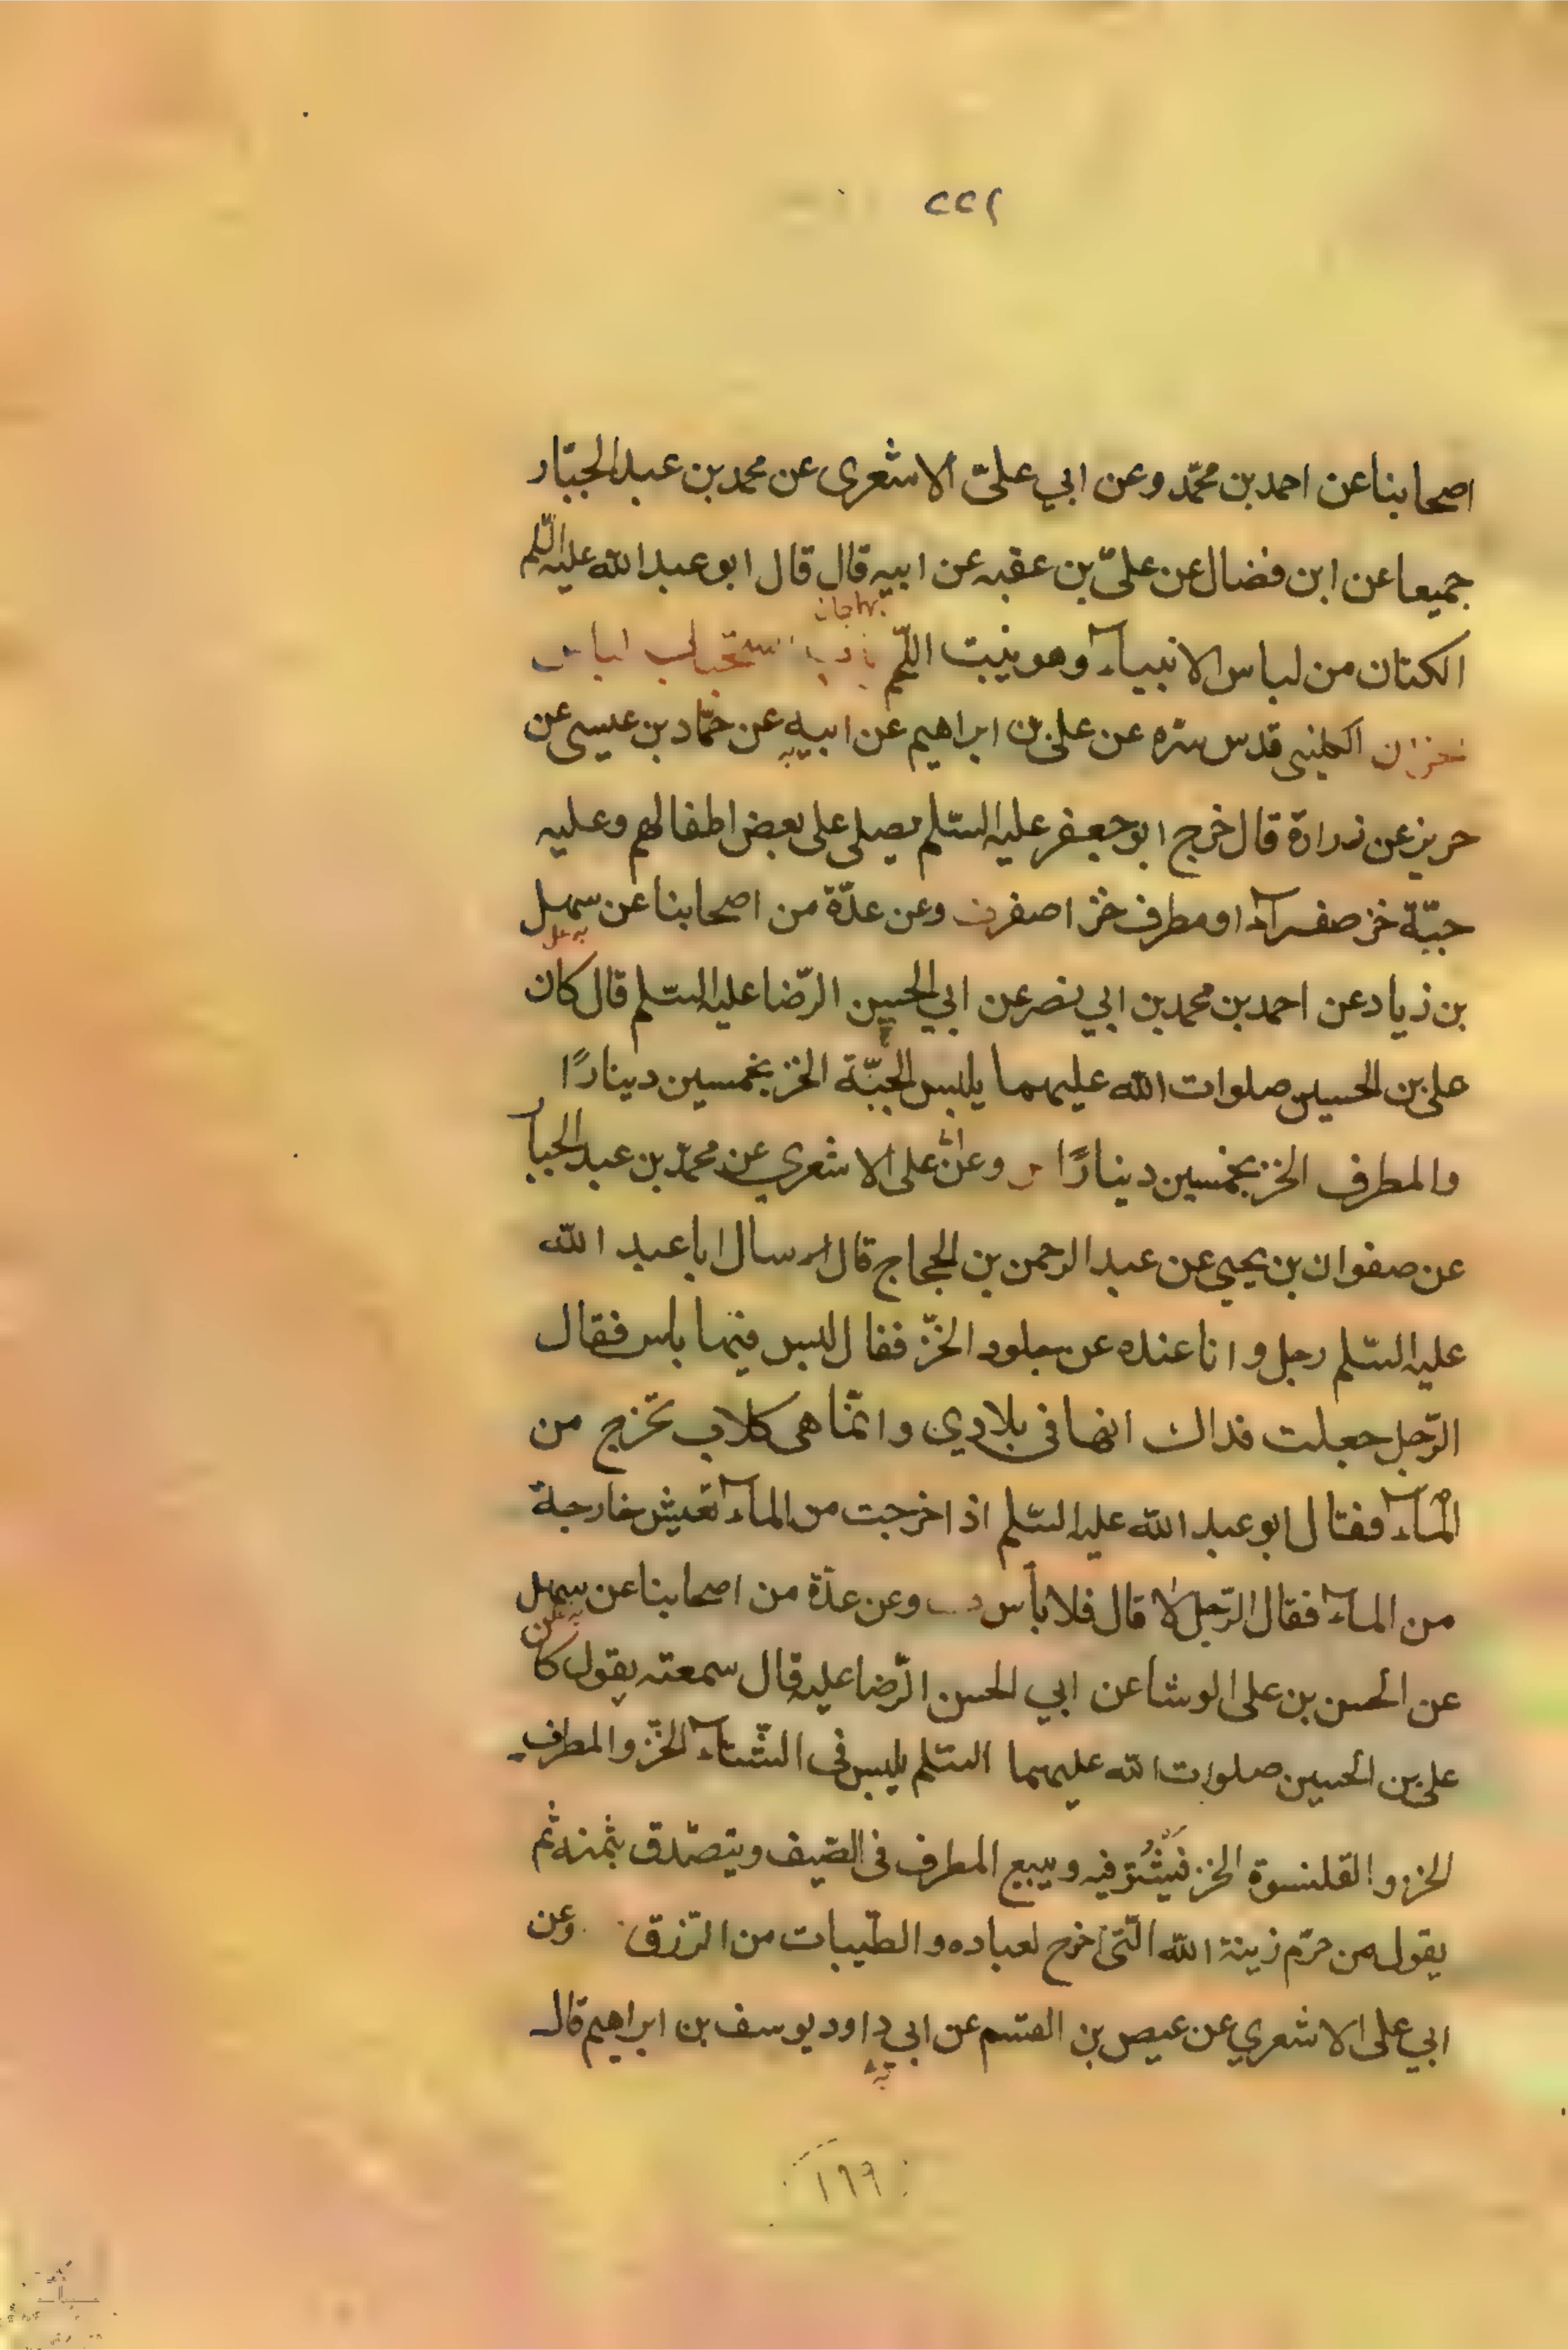 ٢٢٢
اصحابنا عن احمد بن محمّد وعن ابي علىّ الاشعرى عن محمد بن عبد الجبّار
جميعا عن ابن فضال عن علىّ بن عقبه عن ابيه قال قال ابو عبد الله عليه السّلم
الكتان من لباس الانبيآء وهو ينبت اللّحم باب لباس
الكلينى قدس سره عن على بن ابراهيم عن ابيه عن حمّاد بن عيسى عن
حريز عن زرارة قال خرج ابو جعفر عليه السّلم يصلى على بعض اطفالهم وعليه
جبّة خز صفرآء او مطرف خز اصفر وعن عدّة من اصحابنا عن سهل
بن زياد عن احمد بن محمد بن ابي نصر عن ابي الحسين الرّضا عليه السّلم قال كان
على بن الحسين صلوات الله عليهما يلبس الجبّة الخز بخمسين دينارًا
والمطرف الخز بخمسين دينارًا وعن على الاشعري عن محمّد بن عبد الجبا
عن صفوان بن يحيى عن عبد الرحمن بن الحجاج قال سال ابا عبد الله
عليه السّلم رجل وانا عنده عن جلود الخزّ فقال ليس فيها باس فقال
الرّجل جعلت فداك انها فى بلادي وانمّا هى كلاب تخرج من
المآء فقال ابو عبد الله عليه السّلم اذا خرجت من المآء تعيش خارجة
من المآء فقال الرّجل لا قال فلا بأس وعن عدّة من اصحابنا عن سهل
عن الحسن بن على الوشا عن ابي الحسن الرّضا عليه قال سمعته يقول كان
على بن الحسين صلوات الله عليهما السّلم يلبس فى الشّتآء الخزّ والمطرف
الخز والقلنسوة الخز فيشتو فيه ويبيع المطرف فى الصّيف ويتصّدق بثمنه ثم
يقول من حرّم زينة الله الّتى اخرج لعباده والطّيبات من الرّزق وعن
ابي على الاشعري عن عيص بن القسم عن ابي داود يوسف بن ابراهيم قال
١٦٦